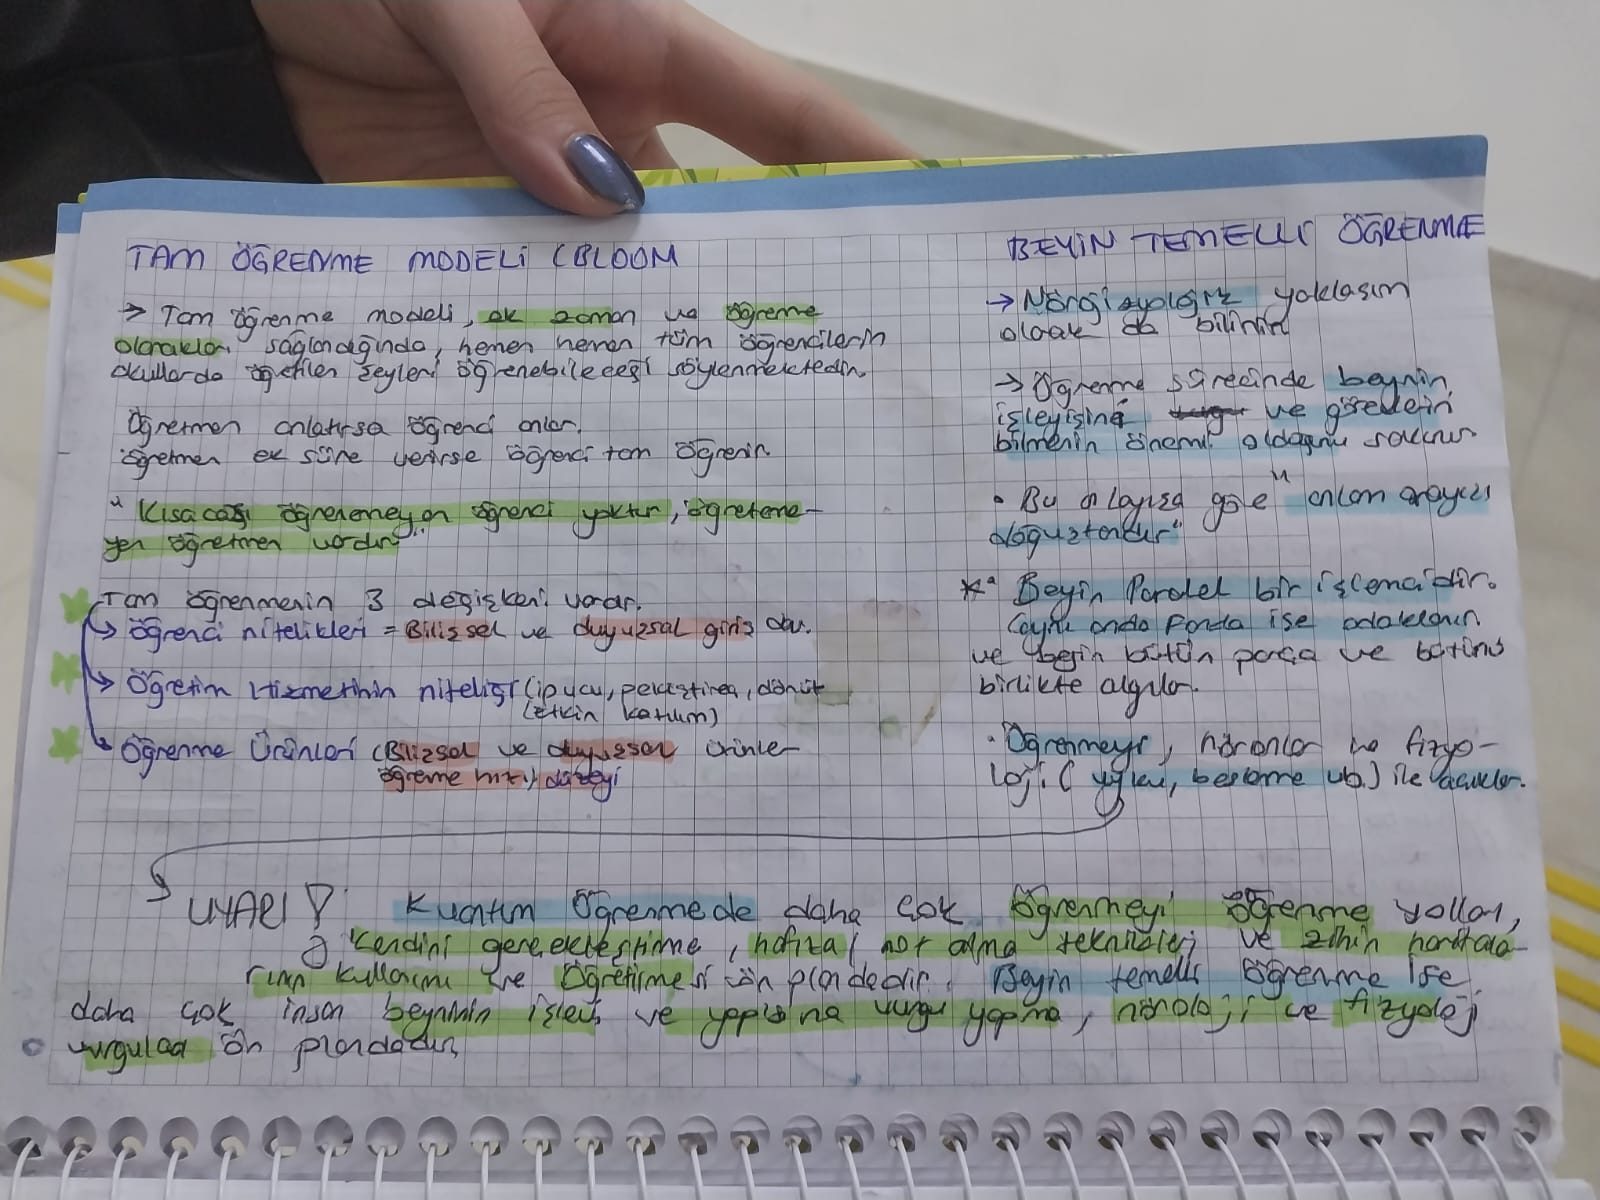 TAM ÖĞRENME MODELİ (BLOOM
→ Tam öğrenme modeli, ek zaman ve öğreme
olanakları sağlandığında, hemen hemen tüm öğrencilerin
okullarda öğretilen şeyleri öğrenebileceği söylenmektedir.
Öğretmen anlatırsa öğrenci anlar.
öğretmen ek süre verirse öğrenci tam öğrenir.
" Kısacası öğrenemeyen öğrenci yoktur, öğreteme-
yen öğretmen vardır"
Tam öğrenmenin 3 değişkeni vardır.
→ öğrenci nitelikleri = Bilişsel ve duyuşsal giriş dav.
→ Öğretim Hizmetinin niteliği (ipucu, pekiştirea, dönüt
(etkin katılım)
Öğrenme Ürünleri (Bilişsel ve duyuşsal ürünler
öğreme hızı, düzeyi
BEYİN TEMELLİ ÖĞRENME
→ Nörofizyolojik yaklaşım
olarak da bilinir
→ Öğrenme sürecinde beynin
işleyişine ve görevlerini
bilmenin önemi olduğunu savunur
• Bu anlayışa göre "anlam arayışı
doğuştandır"
* Beyin Paralel bir işlemcidir.
(aynı anda fonda ise odaklanır.
ve beyin bütün parça ve bütünü
birlikte algılar.
• Öğrenmeyi, nöronlar ve fizyo-
loji (uyku, beslenme vb.) ile açıklar.
UYARI ! Kuantum Öğrenmede daha çok Öğrenmeyi öğrenme yolları,
Kendini gerçekleştirme, hafıza, not alma teknikleri ve zihin haritala-
rının kullanımı ve Öğretilmesi ön plandadır. Beyin temelli Öğrenme ise
daha çok insan beyninin işlevi ve yapısına vurgu yapma, nöroloji ve fizyoloji
vurgular ön plandadır.